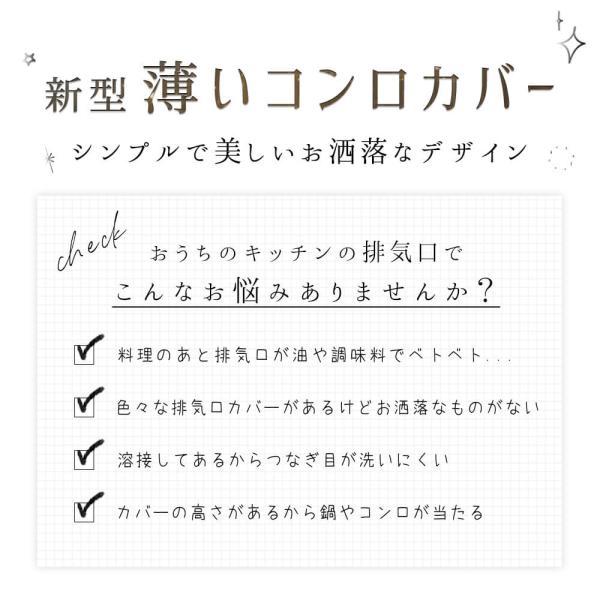 新型 薄いコンロカバー
シンプルで美しいお洒落なデザイン
check
おうちのキッチンの排気口で
こんなお悩みありませんか？
料理のあと排気口が油や調味料でベトベト...
色々な排気口カバーがあるけどお洒落なものがない
溶接してあるからつなぎ目が洗いにくい
カバーの高さがあるから鍋やコンロが当たる